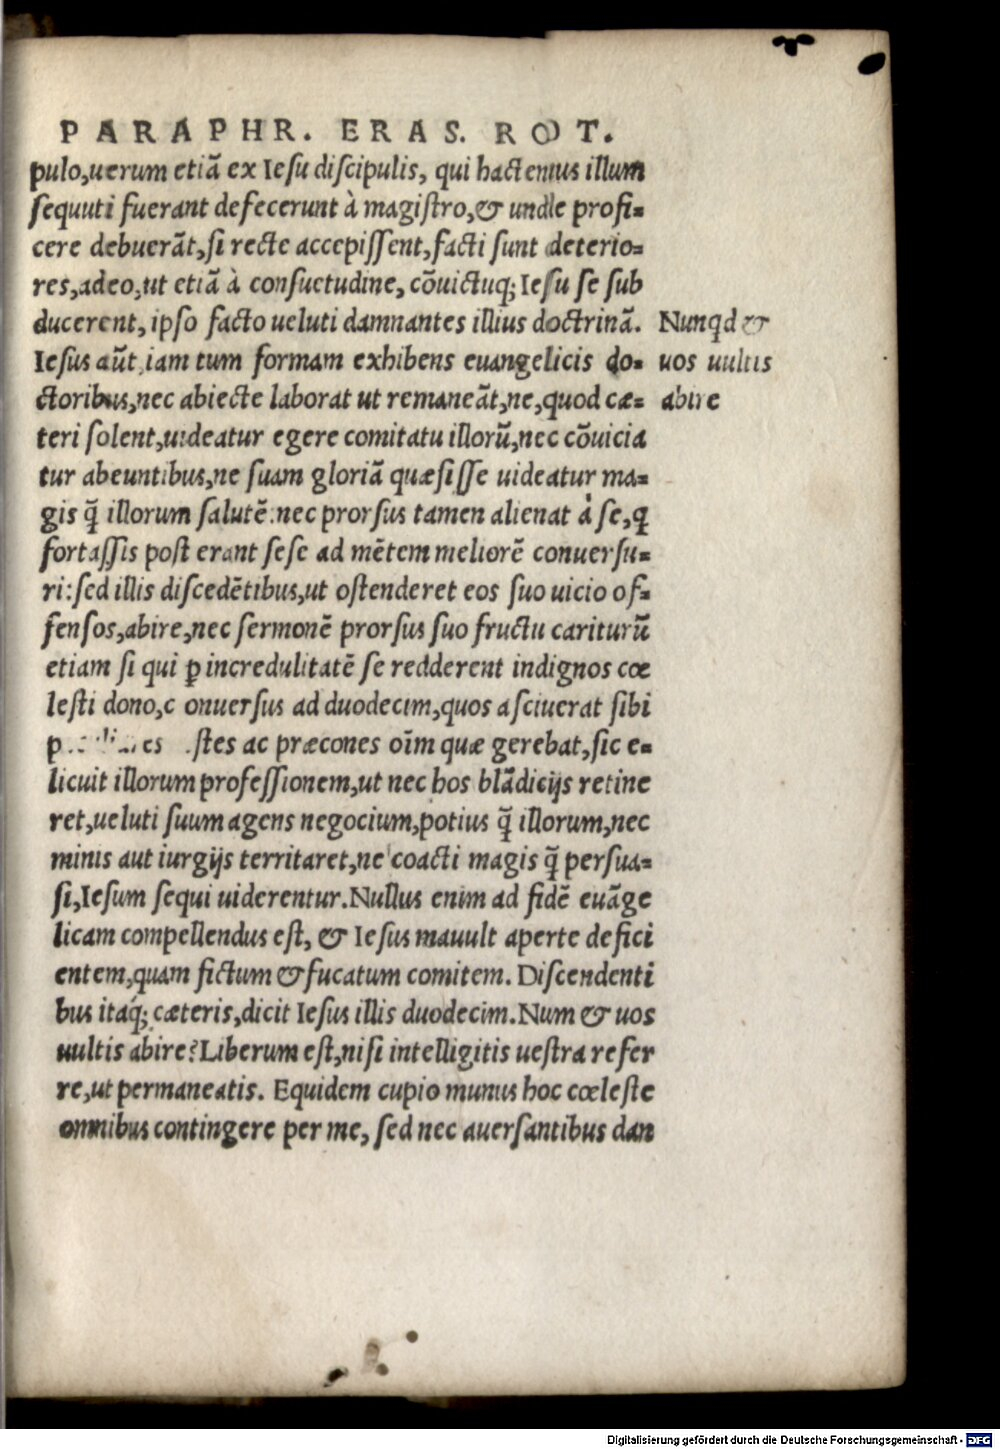 PARAPHR. ERAS. ROT.
pulo,uerum etiã ex Iesu discipulis, qui hactenus illum
sequuti fuerant defecerunt à magistro,& unde profi=
cere debuerãt,si recte accepissent,facti sunt deterio=
res,adeo,ut etiã à consuetudine, cõuictuq; Iesu se sub
ducerent, ipso facto ueluti damnantes illius doctrinã.
Nunqd &
Iesus aũt iam tum formam exhibens euangelicis do=
uos uultis
ctoribus,nec abiecte laborat ut remaneãt,ne,quod cæ=
abire
teri solent,uideatur egere comitatu illorũ,nec cõuicia
tur abeuntibus,ne suam gloriã quæsisse uideatur ma=
gis q̃ illorum salutẽ:nec prorsus tamen alienat à se,q
fortassis post erant sese ad mẽtem meliorẽ conuersu=
ri:sed illis discedẽtibus,ut ostenderet eos suo uicio of=
fensos,abire,nec sermonẽ prorsus suo fructu cariturũ
etiam si qui ꝑ incredulitatẽ se redderent indignos cœ
lesti dono,c onuersus ad duodecim,quos asciuerat sibi
ac præcones oĩm quæ gerebat,sic e=
licuit illorum professionem,ut nec hos blãdicijs retine
ret,ueluti suum agens negocium,potius q̃ illorum,nec
minis aut iurgijs territaret,ne coacti magis q̃ persua=
si,Iesum sequi uiderentur.Nullus enim ad fidẽ euãge
licam compellendus est, & Iesus mauult aperte defici
entem,quam fictum & fucatum comitem. Discendenti
bus itaq; cæteris,dicit Iesus illis duodecim.Num & uos
uultis abire?Liberum est,nisi intelligitis uestra refer
re,ut permaneatis. Equidem cupio munus hoc cœleste
omnibus contingere per me, sed nec auersantibus dan
Digitalisierung gefördert durch die Deutsche Forschungsgemeinschaft - DFG